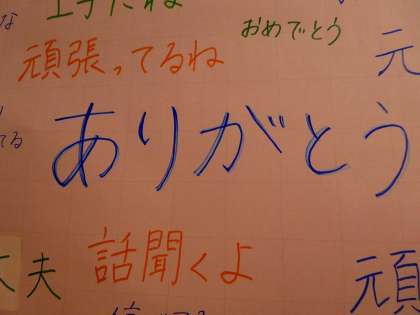 上手だね
おめでとう
頑張ってるね
元
ありがとう
てる
話聞くよ
丈夫
元
頑